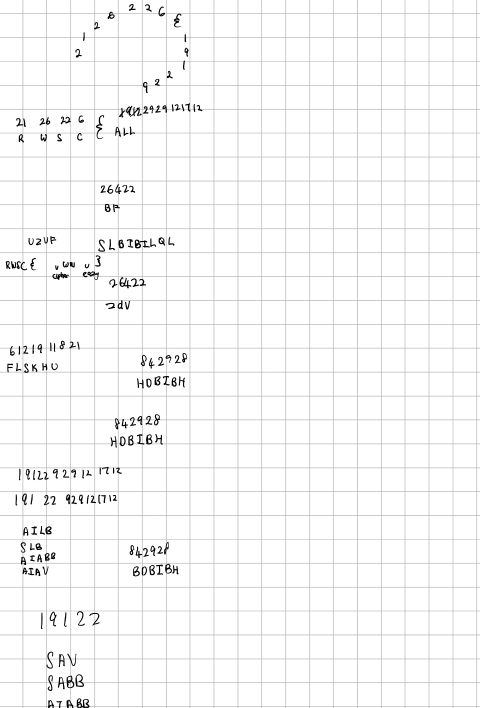 2 1 2 8 2 2 6 {
1 9 1 2 2 9
21 26 22 6 {
R W S C { ALL
26422
BF
UZVF SLBIBILQL
RWSC {
26422
61219 11821
FLSKHU
842928
HDBIBH
842928
HDBIBH
19122 92912 1712
191 22 929121712
AILB
SLB
AIABB
AIAV
842928
BDBIBH
19122
SAV
SABB
AIABB